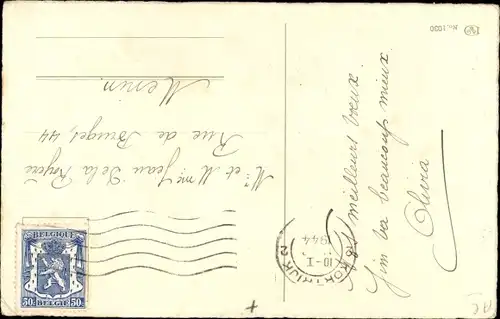 No. 1030
meilleurs vœux
Jim va beaucoup mieux
Olivia
Mr et Mme Jean De la Royère
Rue de Bruges, 44
Menin.
KORTRIJK 2
10-I
1944
BELGIQUE
50c 50c
BELGIE
AC